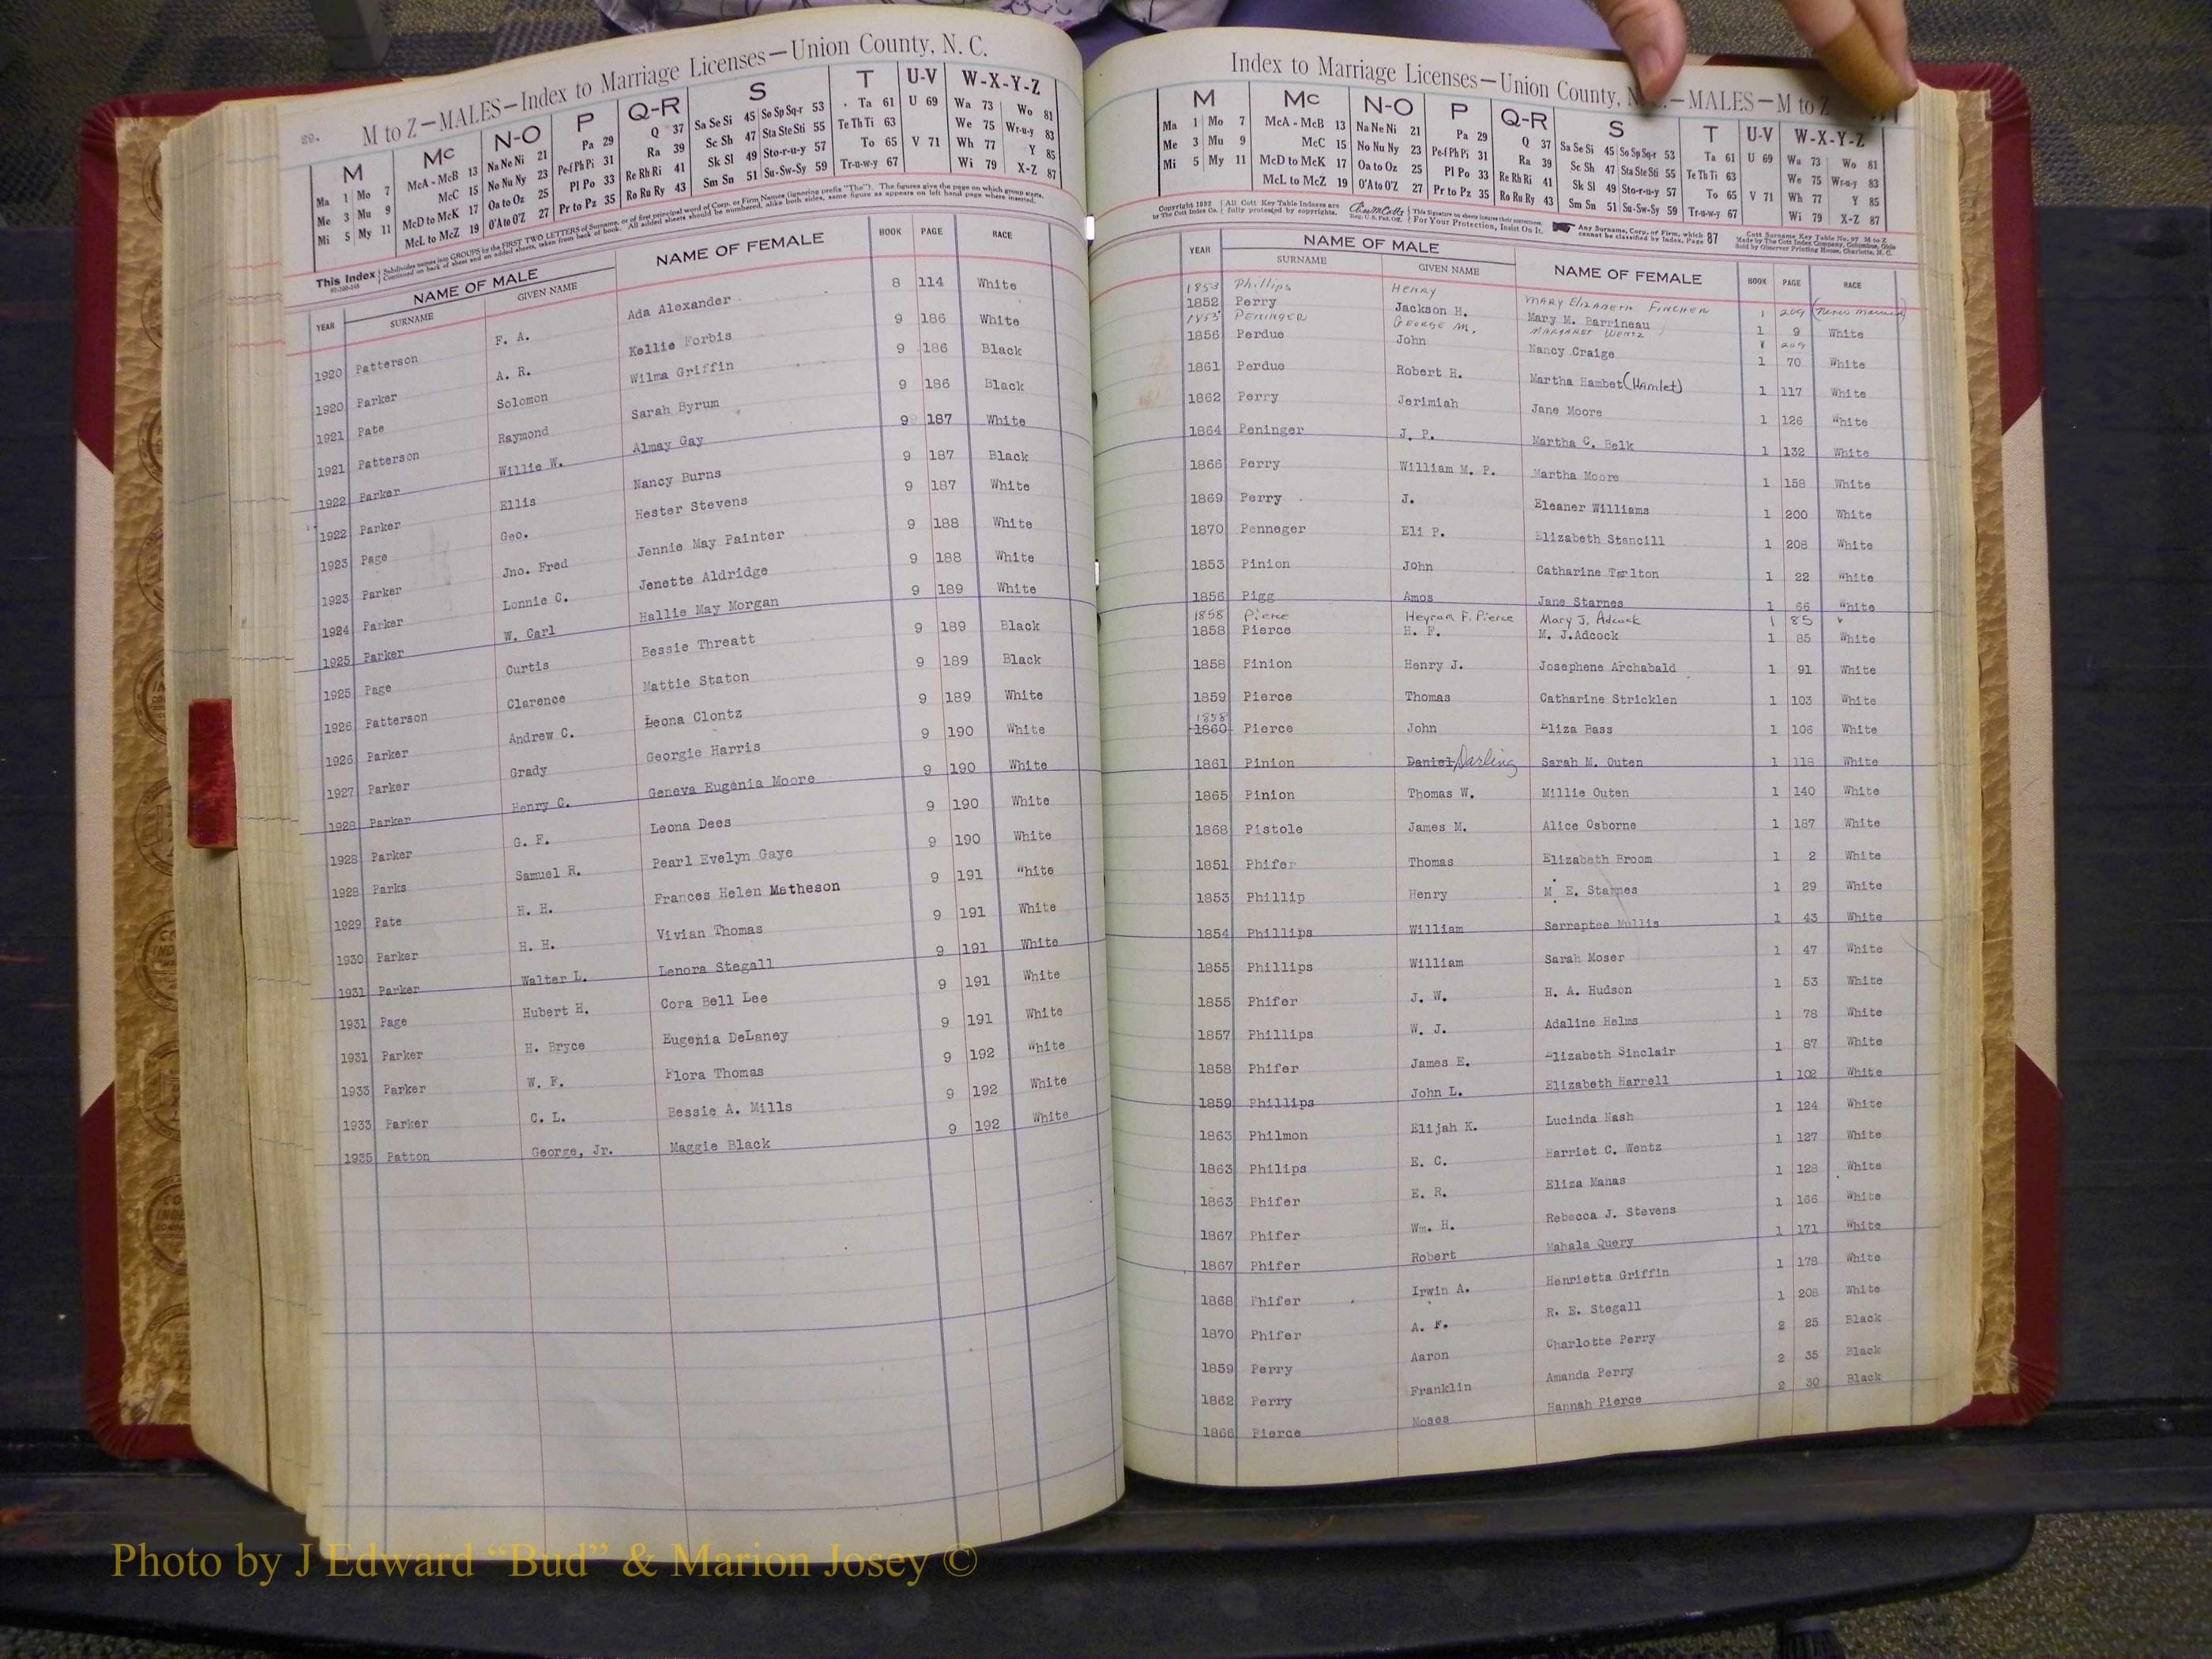 29.
M to Z—MALES—Index to Marriage Licenses—Union County, N. C.
M Mc N-O P Q-R S T U-V W-X-Y-Z
Ma 1 Mo 7 McA - McB 13 Na Ne Ni 21 Pa 29 Q 37 Sa Se Si 45 So Sp Sq-r 53 Ta 61 U 69 Wa 73 Wo 81
Me 3 Mu 9 McC 15 No Nu Ny 23 Pe-f Ph Pi 31 Ra 39 Sc Sh 47 Sta Ste Sti 55 Te Th Ti 63 We 75 Wr-u-y 83
Mi 5 My 11 McD to McK 17 Oa to Oz 25 Pl Po 33 Re Rh Ri 41 Sk Sl 49 Sto-r-u-y 57 To 65 V 71 Wh 77 Y 85
McL to McZ 19 O'A to O'Z 27 Pr to Pz 35 Ro Ru Ry 43 Sm Sn 51 Su-Sw-Sy 59 Tr-u-w-y 67 Wi 79 X-Z 87
This Index Subdivides names into GROUPS by the FIRST TWO LETTERS of Surname, or of first principal word of Corp. or Firm Names (ignoring prefix "The"). The figures give the page on which group starts.
Continued on back of sheet and on added sheets, taken from back of book. All added sheets should be numbered, alike both sides, same figure as appears on left hand page where inserted.
YEAR NAME OF MALE NAME OF FEMALE BOOK PAGE RACE
SURNAME GIVEN NAME
1920 Patterson F. A. Ada Alexander 8 114 White
1920 Parker A. R. Kellie Forbis 9 186 White
1921 Pate Solomon Wilma Griffin 9 186 Black
1921 Patterson Raymond Sarah Byrum 9 186 Black
1922 Parker Willie W. Almay Gay 9 187 White
1922 Parker Ellis Nancy Burns 9 187 Black
1923 Page Geo. Hester Stevens 9 187 White
1923 Parker Jno. Fred Jennie May Painter 9 188 White
1924 Parker Lonnie C. Jenette Aldridge 9 188 White
1925 Parker W. Carl Hallie May Morgan 9 189 White
1925 Page Curtis Bessie Threatt 9 189 Black
1926 Patterson Clarence Mattie Staton 9 189 Black
1926 Parker Andrew C. Leona Clontz 9 189 White
1927 Parker Grady Georgie Harris 9 190 White
1928 Parker Henry C. Geneva Eugenia Moore 9 190 White
1928 Parker G. F. Leona Dees 9 190 White
1928 Parks Samuel R. Pearl Evelyn Gaye 9 190 White
1929 Pate H. H. Frances Helen Matheson 9 191 "hite
1930 Parker H. H. Vivian Thomas 9 191 White
1931 Parker Walter L. Lenora Stegall 9 191 White
1931 Page Hubert H. Cora Bell Lee 9 191 White
1931 Parker H. Bryce Eugenia DeLaney 9 191 White
1933 Parker W. F. Flora Thomas 9 192 White
1933 Parker C. L. Bessie A. Mills 9 192 White
1935 Patton George, Jr. Maggie Black 9 192 White
Index to Marriage Licenses—Union County, N. C.—MALES—M to Z
M Mc N-O P Q-R S T U-V W-X-Y-Z
Ma 1 Mo 7 McA - McB 13 Na Ne Ni 21 Pa 29 Q 37 Sa Se Si 45 So Sp Sq-r 53 Ta 61 U 69 Wa 73 Wo 81
Me 3 Mu 9 McC 15 No Nu Ny 23 Pe-f Ph Pi 31 Ra 39 Sc Sh 47 Sta Ste Sti 55 Te Th Ti 63 We 75 Wr-u-y 83
Mi 5 My 11 McD to McK 17 Oa to Oz 25 Pl Po 33 Re Rh Ri 41 Sk Sl 49 Sto-r-u-y 57 To 65 V 71 Wh 77 Y 85
McL to McZ 19 O'A to O'Z 27 Pr to Pz 35 Ro Ru Ry 43 Sm Sn 51 Su-Sw-Sy 59 Tr-u-w-y 67 Wi 79 X-Z 87
Copyright 1932 by The Cott Index Co. All Cott Key Table Indexes are fully protected by copyrights. Reg. U.S. Pat. Off. This Signature on sheets insures their correctness. For Your Protection, Insist On It. Any Surname, Corp. or Firm, which cannot be classified by Index, Page 87 Cott Surname Key Table No. 97 M to Z Made by The Cott Index Company, Columbus, Ohio Sold by Observer Printing House, Charlotte, N. C.
YEAR NAME OF MALE NAME OF FEMALE BOOK PAGE RACE
SURNAME GIVEN NAME
1853 Phillips Henry Mary Elizabeth Fincher 1 209 (Never married)
1852 Perry Jackson H. Mary M. Barrineau 1 9 White
1855 Peninger George M. Margaret Wentz 1 209
1856 Perdue John Nancy Craige 1 70 White
1861 Perdue Robert H. Martha Hambet (Hamlet) 1 117 White
1862 Perry Jerimiah Jane Moore 1 126 "hite
1864 Peninger J. P. Martha C. Belk 1 132 White
1866 Perry William M. P. Martha Moore 1 158 White
1869 Perry J. Eleaner Williams 1 200 White
1870 Penneger Eli P. Elizabeth Stancill 1 208 White
1853 Pinion John Catharine Tarlton 1 22 White
1856 Pigg Amos Jane Starnes 1 66 "hite
1858 Pierce Heyram F. Pierce Mary J. Adcock 1 85 "
1858 Pierce H. F. M. J.Adcock 1 85 White
1858 Pinion Henry J. Josephene Archabald 1 91 White
1859 Pierce Thomas Catharine Stricklen 1 103 White
1858
1860 Pierce John Eliza Bass 1 106 White
1861 Pinion Daniel Darling Sarah M. Outen 1 118 White
1865 Pinion Thomas W. Millie Outen 1 140 White
1868 Pistole James M. Alice Osborne 1 187 White
1851 Phifer Thomas Elizabeth Broom 1 2 White
1853 Phillip Henry M. E. Starnes 1 29 White
1854 Phillips William Serreptee Mullis 1 43 White
1855 Phillips William Sarah Moser 1 47 White
1855 Phifer J. W. H. A. Hudson 1 53 White
1857 Phillips W. J. Adaline Helms 1 78 White
1858 Phifer James E. Elizabeth Sinclair 1 87 White
1859 Phillips John L. Elizabeth Harrell 1 102 White
1863 Philmon Elijah K. Lucinda Nash 1 124 White
1863 Philips E. C. Harriet C. Wentz 1 127 White
1863 Phifer E. R. Eliza Manas 1 128 White
1867 Phifer Wm. H. Rebecca J. Stevens 1 166 White
1867 Phifer Robert Mahala Query 1 171 White
1868 Phifer Irwin A. Henrietta Griffin 1 178 White
1870 Phifer A. F. R. E. Stegall 1 208 White
1859 Perry Aaron Charlotte Perry 2 25 Black
1862 Perry Franklin Amanda Perry 2 35 Black
1866 Pierce Moses Hannah Pierce 2 30 Black
Photo by J Edward “Bud” & Marion Josey ©